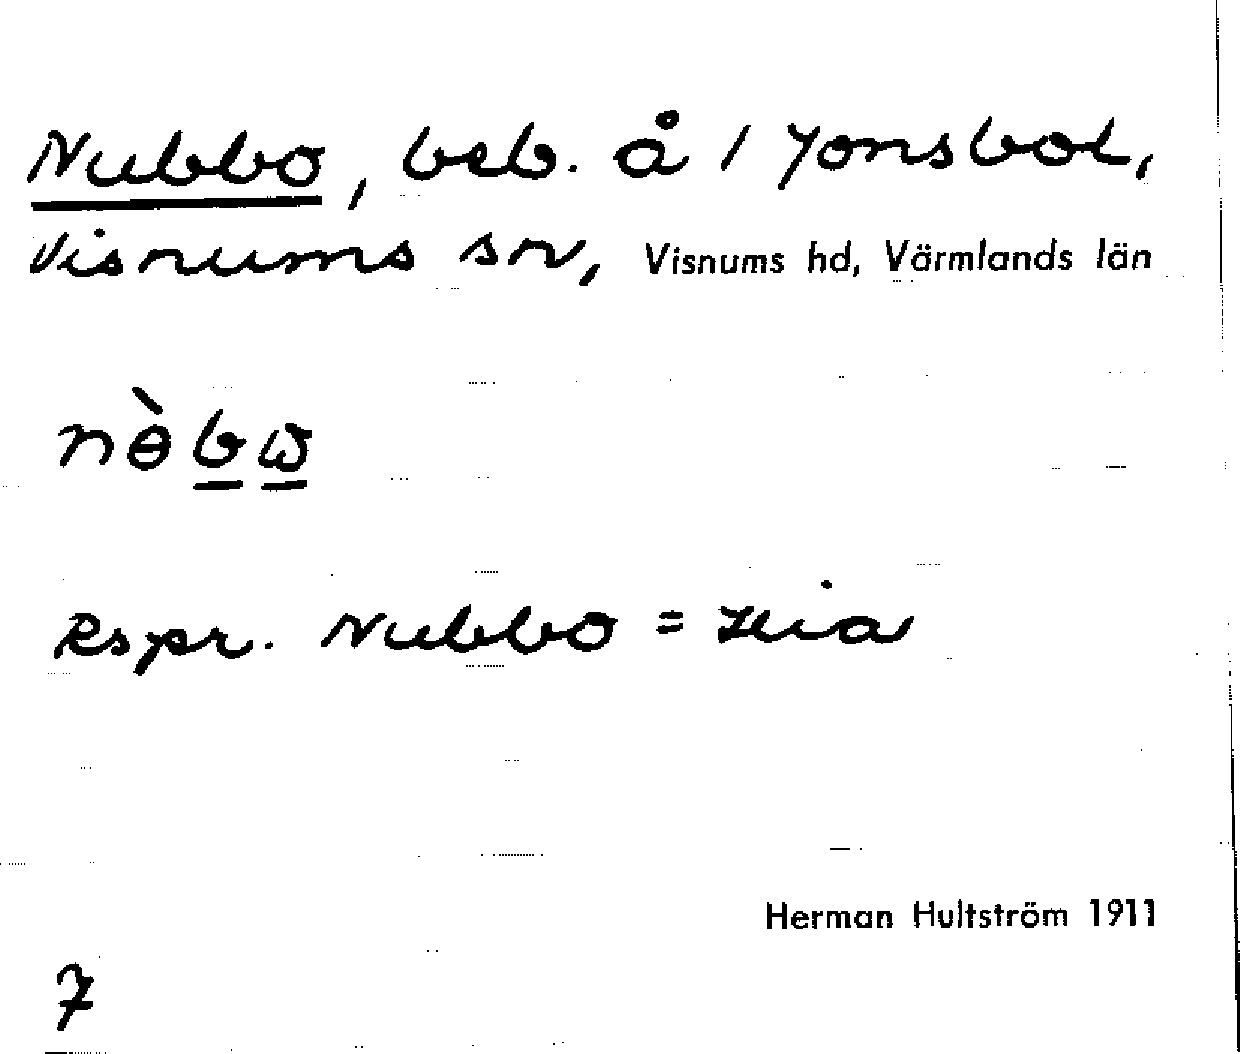 Nubbo, beb. å 1 Jonsbol,
Visnums sn, Visnums hd, Värmlands län
nɵ̀bω
Rspr. Nubbo =
Herman Hultström 1911
7